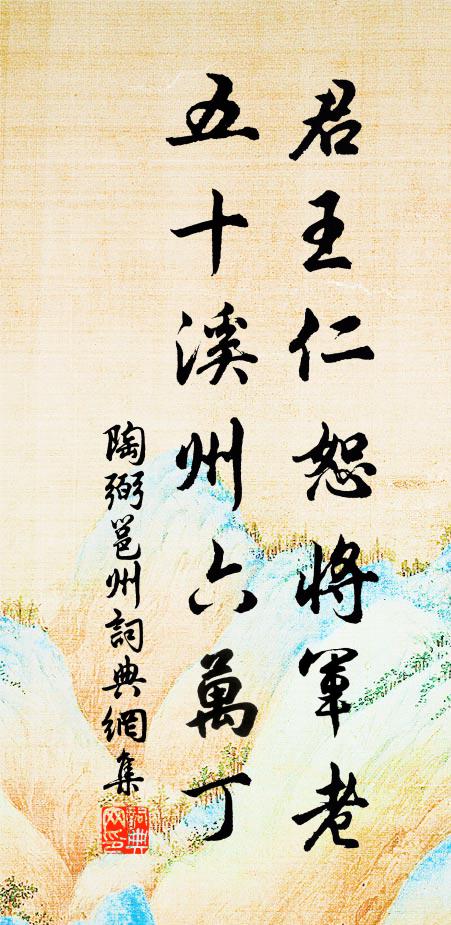 君王仁恕將軍老
五十溪州六萬丁
陶弼邕州詞典網集
詞典
网印